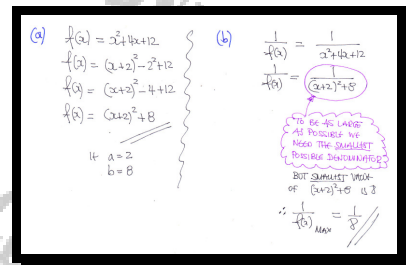 (a) f(x) = x²+4x+12
f(x) = (x+2)²-2²+12
f(x) = (x+2)²-4+12
f(x) = (x+2)²+8
a=2
b=8
(b) 1/f(x) = 1/x²+4x+12
1/f(x) = 1/(x+2)²+8
TO BE AS LARGE
AS POSSIBLE WE
NEED THE SMALLEST
POSSIBLE DENOMINATOR
BUT SMALLEST VALUE
OF (x+2)²+8 IS 8
∴ 1/f(x) MAX = 1/8